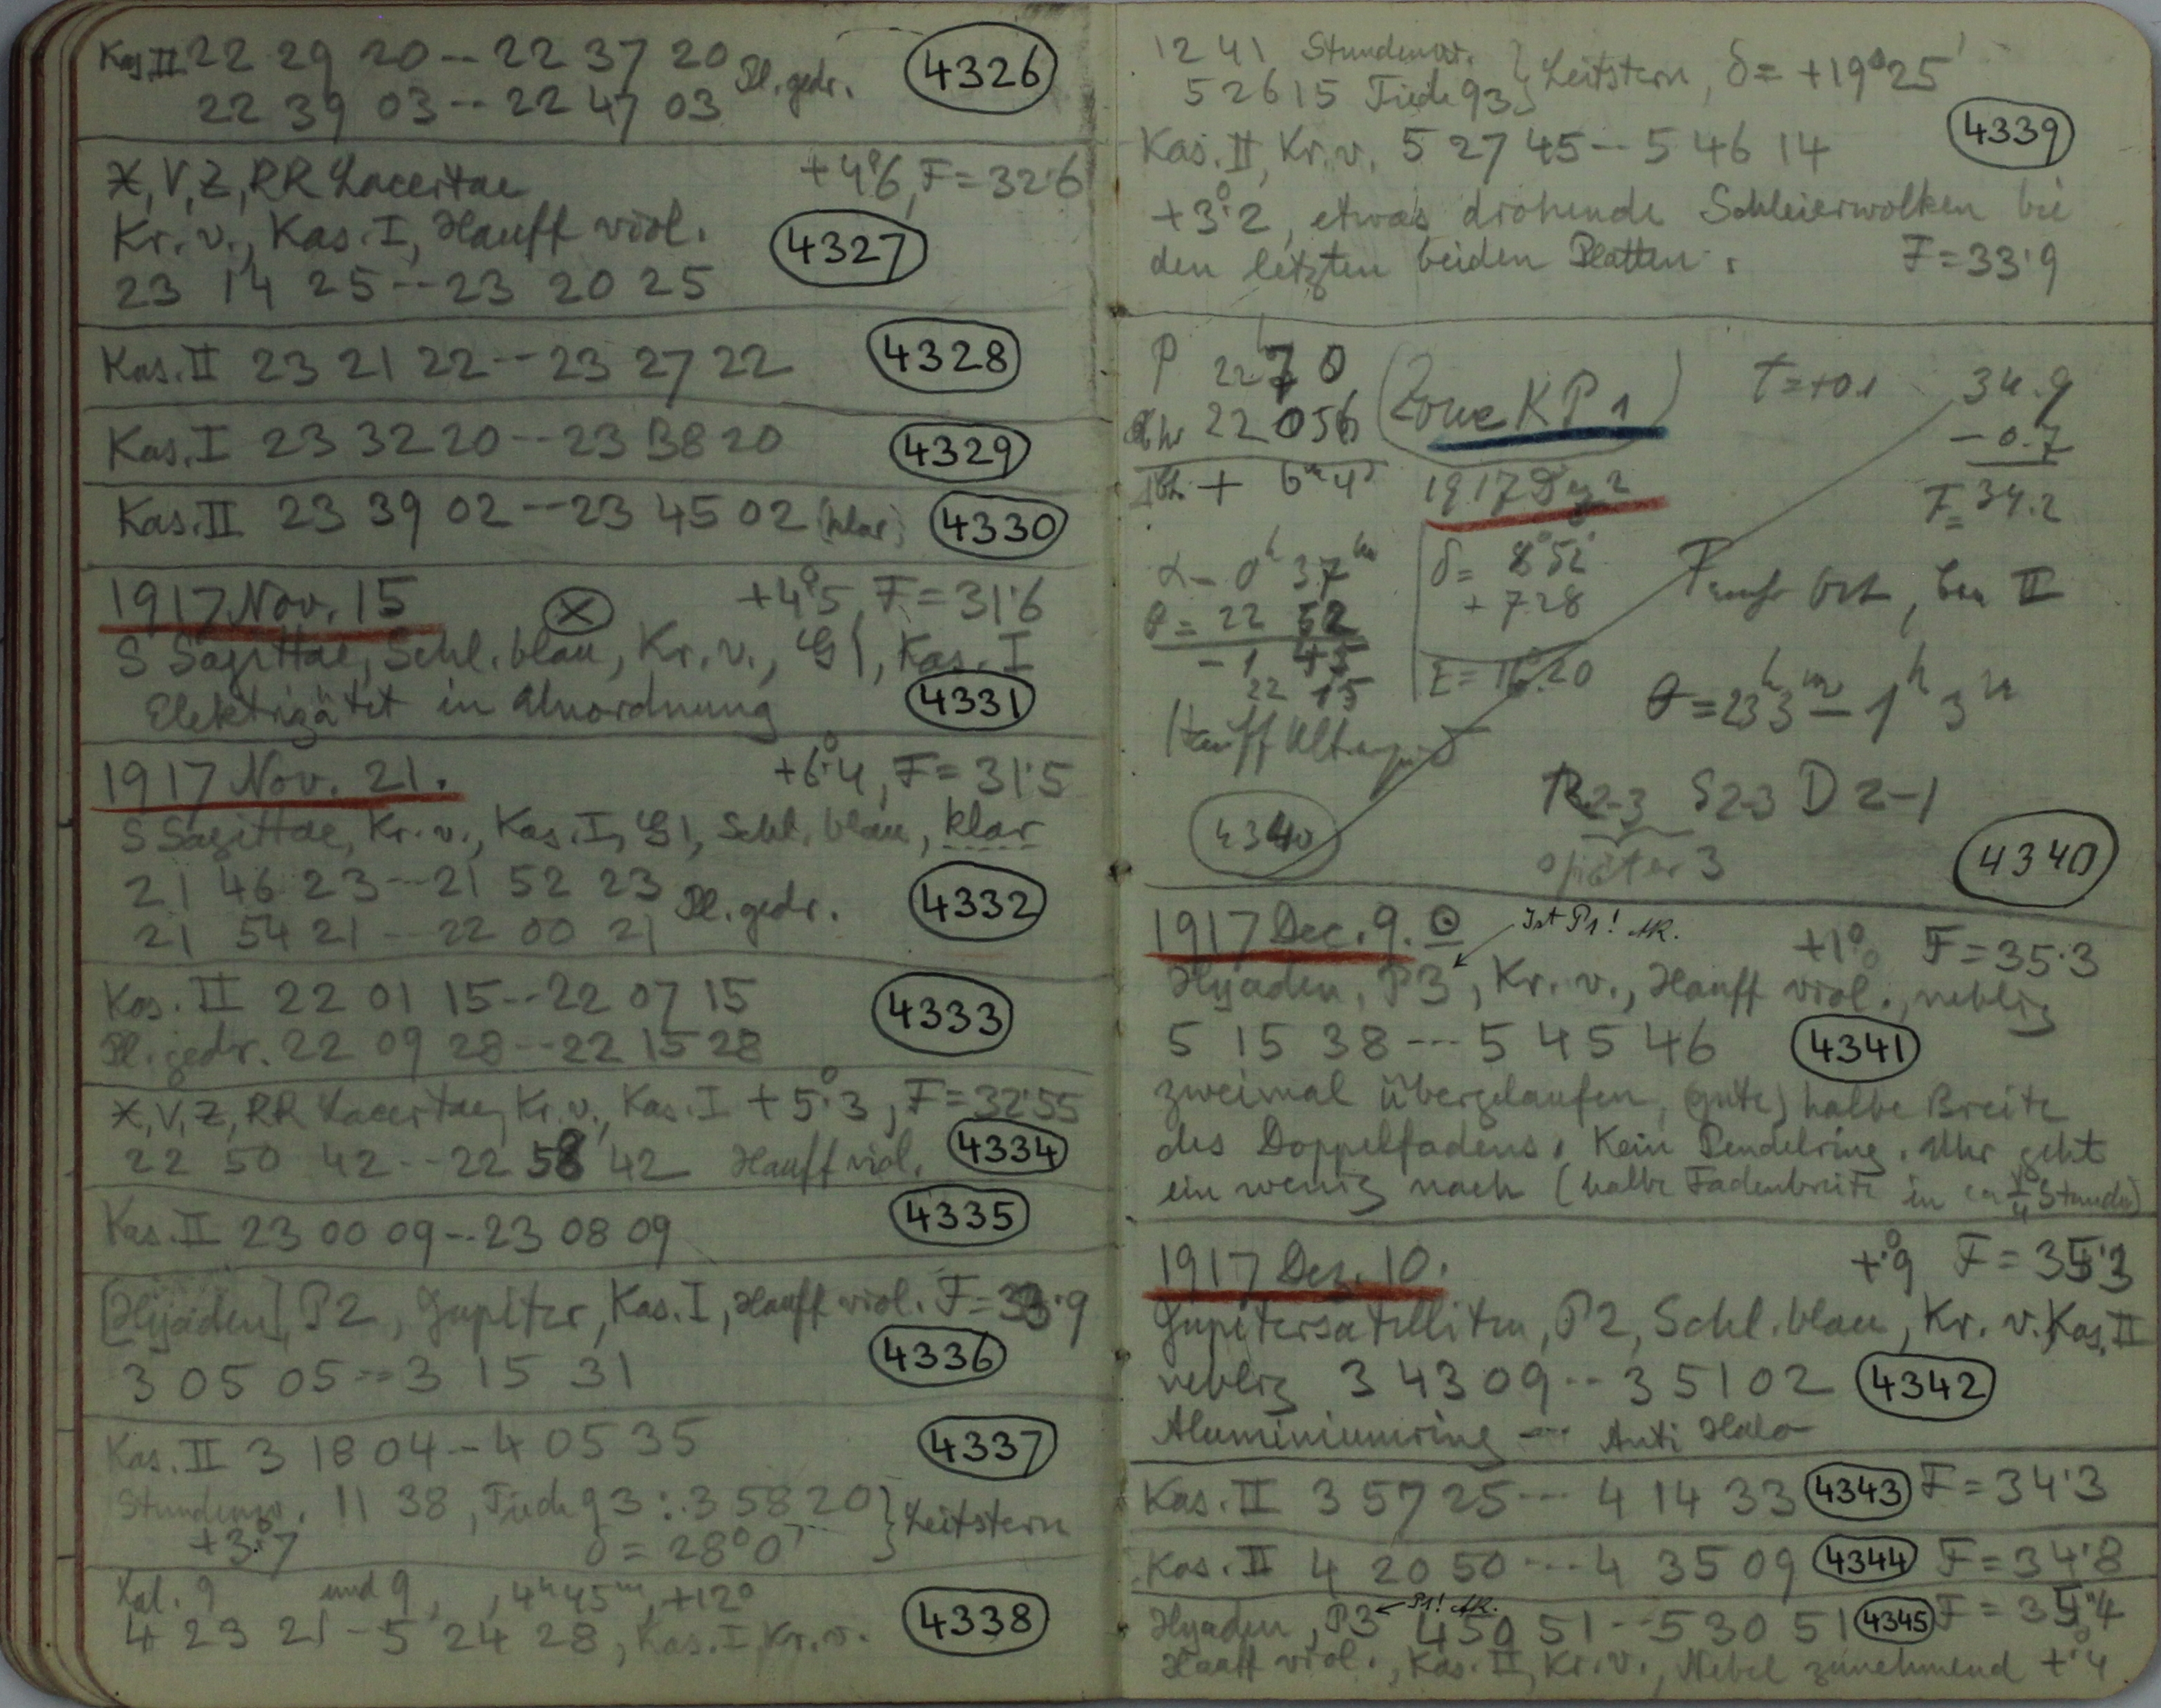 Kas. II 22 29 20 -- 22 37 20 Pl. gedr. 4326
22 39 03 -- 22 47 03
X, V, Z, RR Lacertae +4°.6, F = 32.6
Kr. v., Kas. I, Hauff viol. 4327
23 14 25 -- 23 20 25
Kas. II 23 21 22 -- 23 27 22 4328
Kas. I 23 32 20 -- 23 38 20 4329
Kas. II 23 39 02 -- 23 45 02 (klar) 4330
1917 Nov. 15 +4°.5, F = 31.6
S Sagittae, Schl. blau, Kr. v., G 1, Kas. I
Elektrizität in Unordnung 4331
1917 Nov. 21. +6°.4, F = 31.5
S Sagittae, Kr. v., Kas. I, G 1, Schl. blau, klar
21 46 23 --- 21 52 23 Pl. gedr. 4332
21 54 21 --- 22 00 21
Kas. II 22 01 15 --- 22 07 15 4333
Pl. gedr. 22 09 28 --- 22 15 28
X, V, Z, RR Lacertae, Kr. v., Kas. I +5°.3, F = 32.55
22 50 42 --- 22 58 42 Hauff viol. 4334
Kas. II 23 00 09 -- 23 08 09 4335
[Hyaden], P2, Jupiter, Kas. I, Hauff viol. F = 33.9
3 05 05 -- 3 15 31 4336
Kas. II 3 18 04 -- 4 05 35 4337
Stundenw. 11 38, Tiede 93: 3 58 20 } Leitstern
+3°.7 δ = 28°0'
Kal. 9 und 9, 4h 45m, +12°
4 23 21 - 5 24 28, Kas. I Kr. v. 4338
12 41 Stundenw. } Leitstern, δ = +19°25'
5 26 15 Tiede 93
Kas. II, Kr. v. 5 27 45 -- 5 46 14 4339
+3°.2, etwas drohende Schleierwolken bei
den letzten beiden Platten. F = 33.9
P 22h 7 0 (Zone KP 1) t = +0.1 34.9
Uhr 22 056 - 0.7
+ 6m 4s 1917 Dez 2 F = 34.2
α = 0h 37m δ = 8°52'
θ = 22 52 + 728 bei II
- 1 45 E = 16.20 θ = 23h 3m - 1h 3m
22 15
Hauff Ultrarapid
R2-3 S2-3 D 2-1
4340 später 3 4340
1917 Dec. 9. ⊙ Ist P1! AK. +1°.0 F = 35.3
Hyaden, P3, Kr. v., Hauff viol., neblig
5 15 38 --- 5 45 46 4341
zweimal übergelaufen, (gute) halbe Breite
des Doppelfadens. Kein Pendelring. Uhr geht
ein wenig nach (halbe Fadenbreite in ca ¼ Stunde)
1917 Dez. 10. +°.9 F = 35.3
Jupitersatelliten, P2, Schl. blau, Kr. v. Kas. II
neblig 3 43 09 -- 3 51 02 4342
Aluminiumring --- Anti Halo
Kas. II 3 57 25 --- 4 14 33 4343 F = 34.3
Kas. II 4 20 50 --- 4 35 09 4344 F = 34.8
Hyaden, P3 ← P1! AK. 4 59 51 -- 5 30 51 4345 F = 35.4
Hauff viol., Kas. II, Kr. v., Nebel zunehmend +°.4